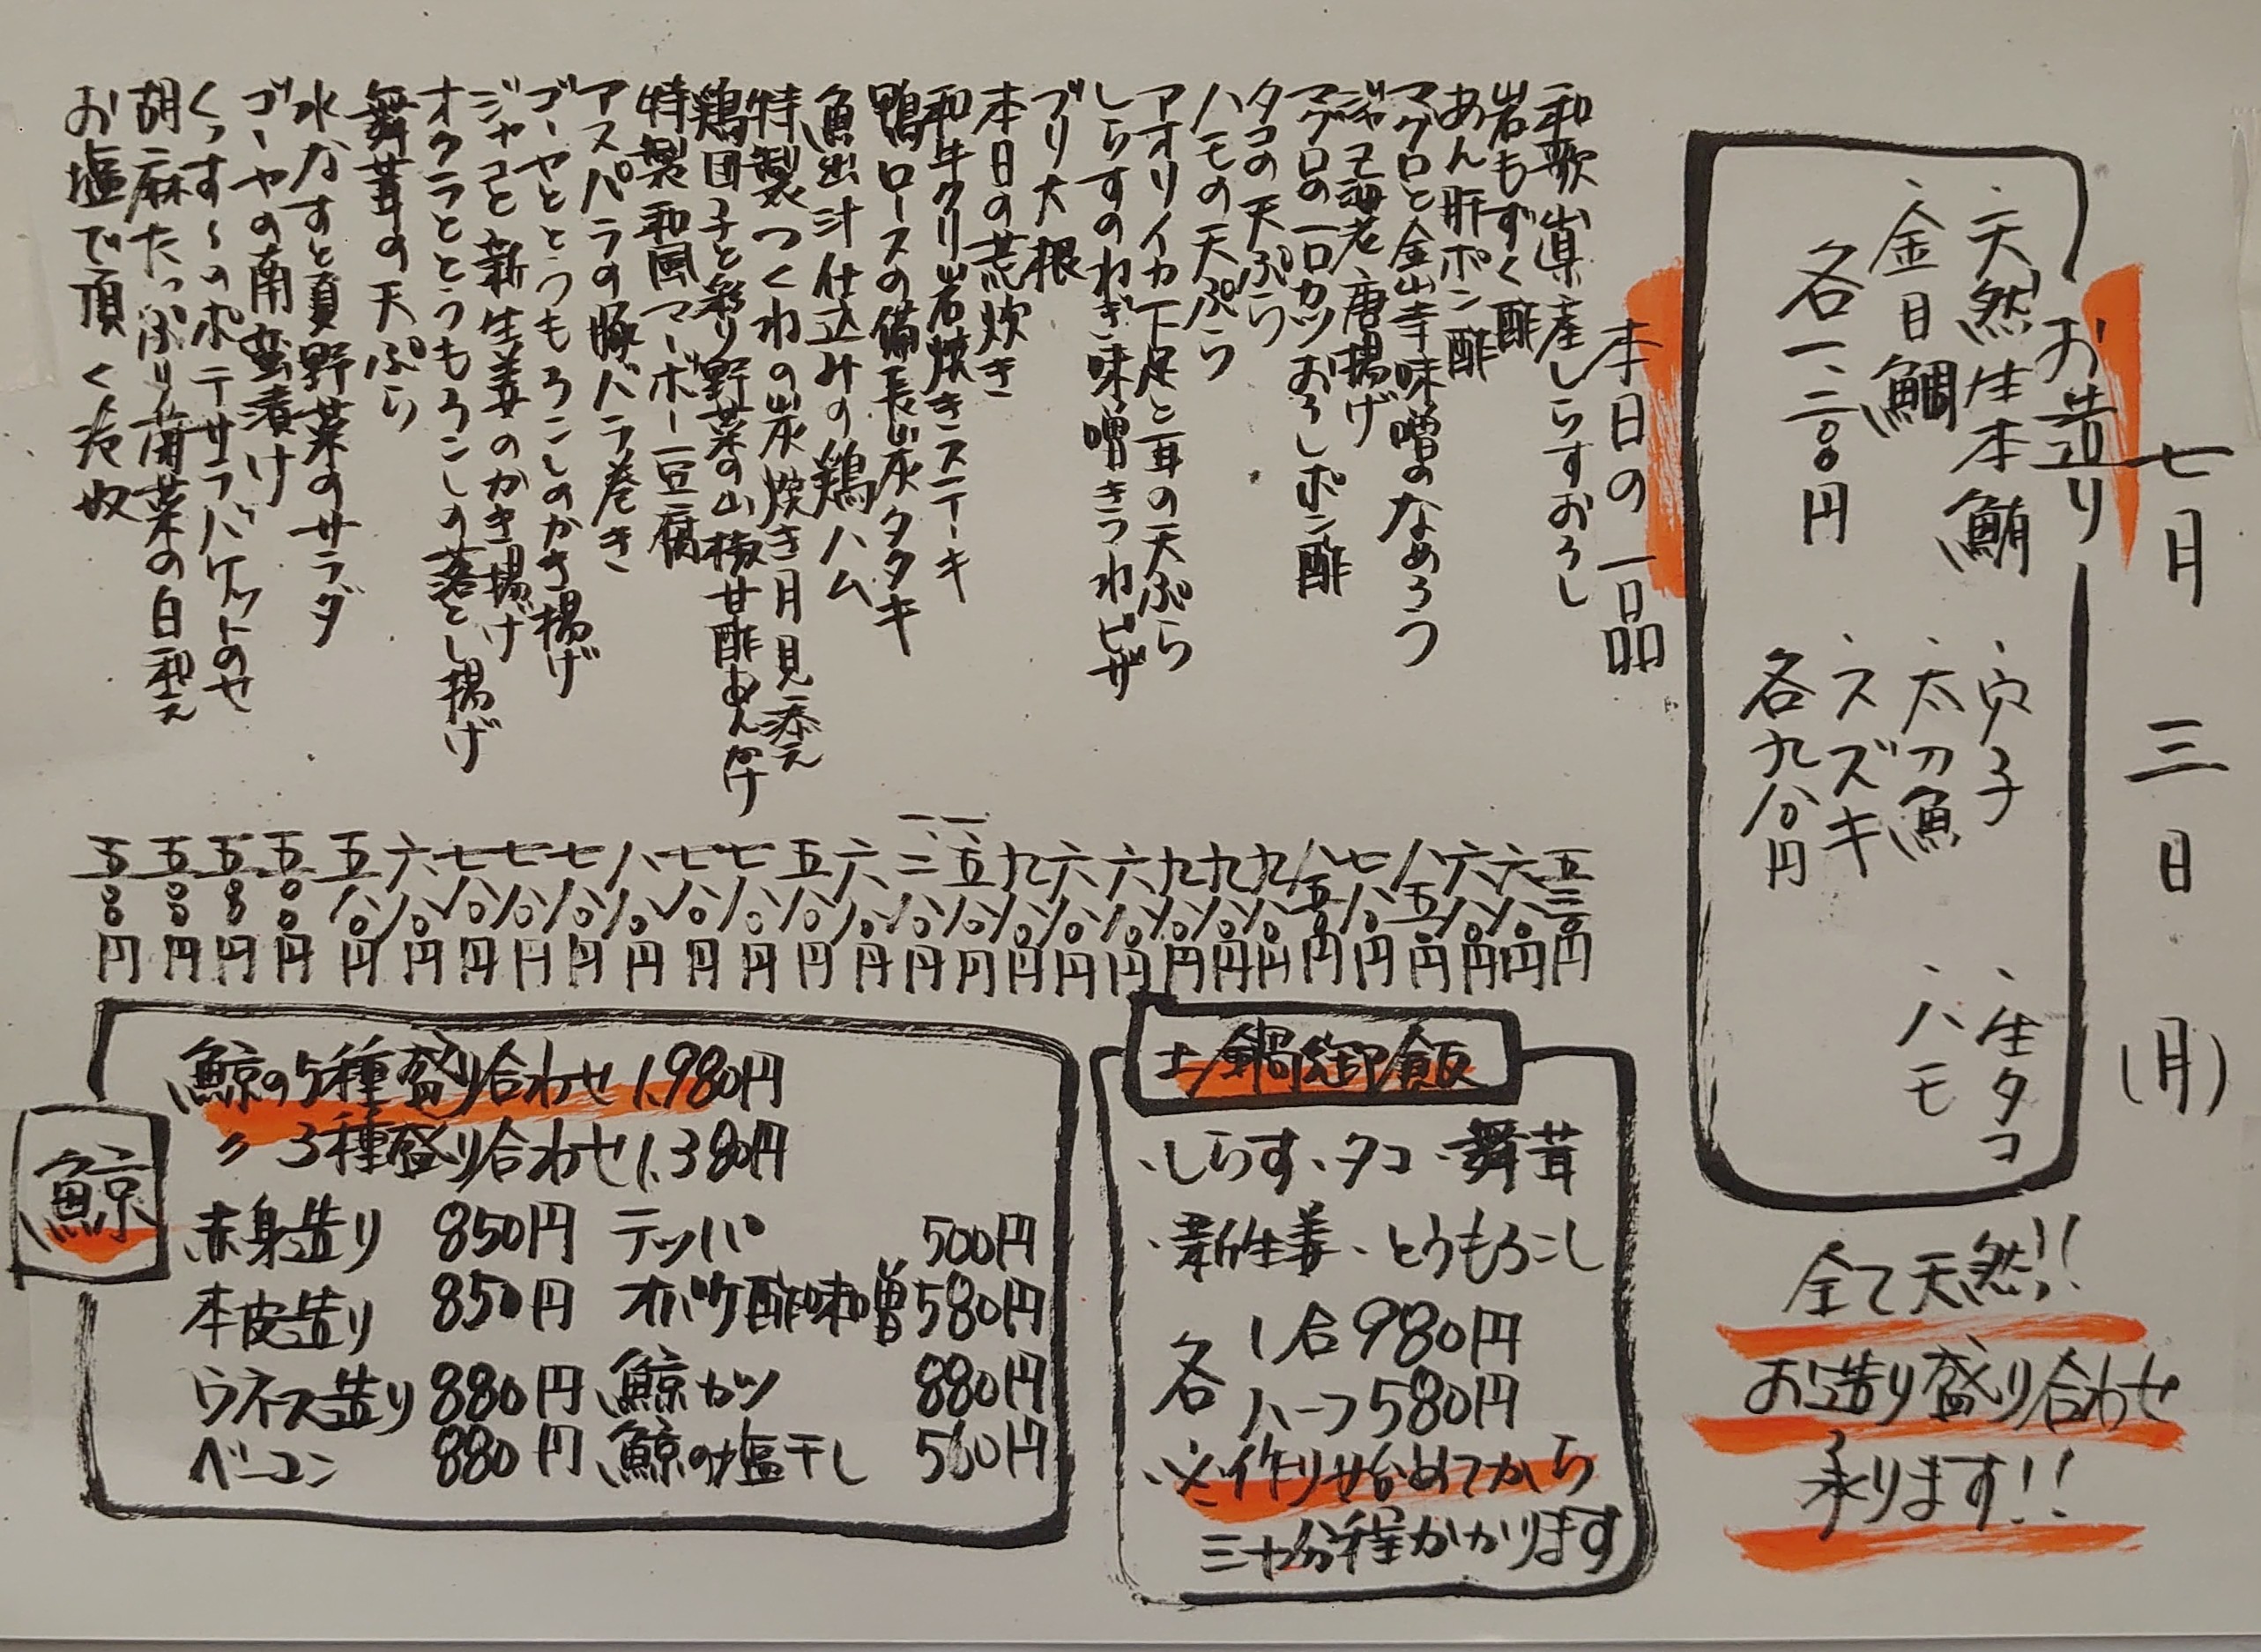 七月三日(月)
お造り
、天然生本鮪
、金目鯛
各一、二〇〇円
、穴子
、太刀魚
、スズキ
各九八〇円
、生タコ
、ハモ
全て天然!!
お造り盛り合わせ
承ります!!
本日の一品
和歌山県産しらすおろし 五三〇円
岩もずく酢 六八〇円
あん肝ポン酢 六八〇円
マグロと金山寺味噌のなめろう 八五〇円
ジャコ海老唐揚げ 七八〇円
マグロの一口カツおろしポン酢 八五〇円
タコの天ぷら 九八〇円
ハモの天ぷら 九八〇円
アオリイカ下足と耳の天ぷら 九八〇円
しらすのねぎ味噌きつねピザ 六八〇円
ブリ大根 六八〇円
本日の荒炊き 九八〇円
和牛クリ岩焼きステーキ 一、五八〇円
鴨ロースの備長炭タタキ 一、二八〇円
魚出汁仕込みの鶏ハム 六八〇円
特製つくねの炭焼き月見添え 五八〇円
鶏団子と彩り野菜の山椒甘酢あんかけ 七八〇円
特製和風マーボー豆腐 七八〇円
アスパラの豚バラ巻き 八八〇円
ゴーヤととうもろこしのかき揚げ 七八〇円
ジャコと新生姜のかき揚げ 七八〇円
オクラととうもろこしの落とし揚げ 七八〇円
舞茸の天ぷら 六八〇円
水なすと夏野菜のサラダ 五八〇円
ゴーヤの南蛮漬け 五〇〇円
くっす〜のポテサラバケットのせ 五五〇円
胡麻たっぷり蒲菜の白和え 五五〇円
お塩で頂く冷奴 五〇〇円
土鍋御飯
、しらす、タコ、舞茸
、新生姜、とうもろこし
各
1合980円
ハーフ580円
※作り始めてから
三十分程かかります
鯨
鯨の5種盛り合わせ1,980円
〃3種盛り合わせ1,380円
赤身造り 850円 テッパ 500円
本皮造り 850円 オバケ酢味噌580円
ウネス造り880円 鯨カツ 880円
ベーコン 880円 鯨の塩干し 500円